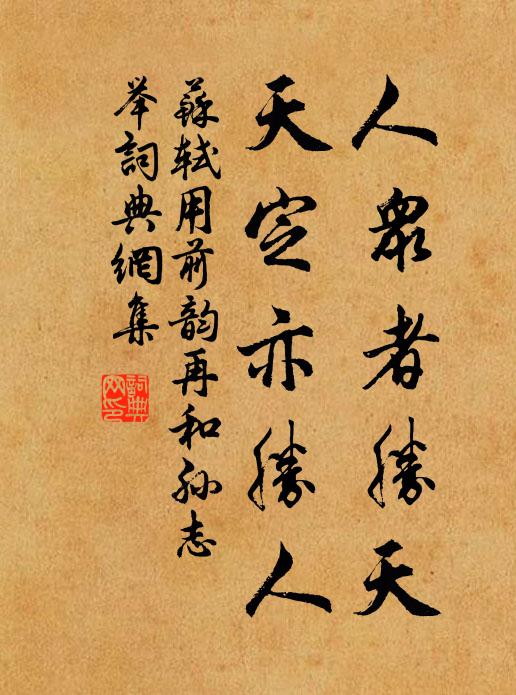 人眾者勝天
天定亦勝人
蘇軾用前韵再和孙志
举詞典網集
詞典网印